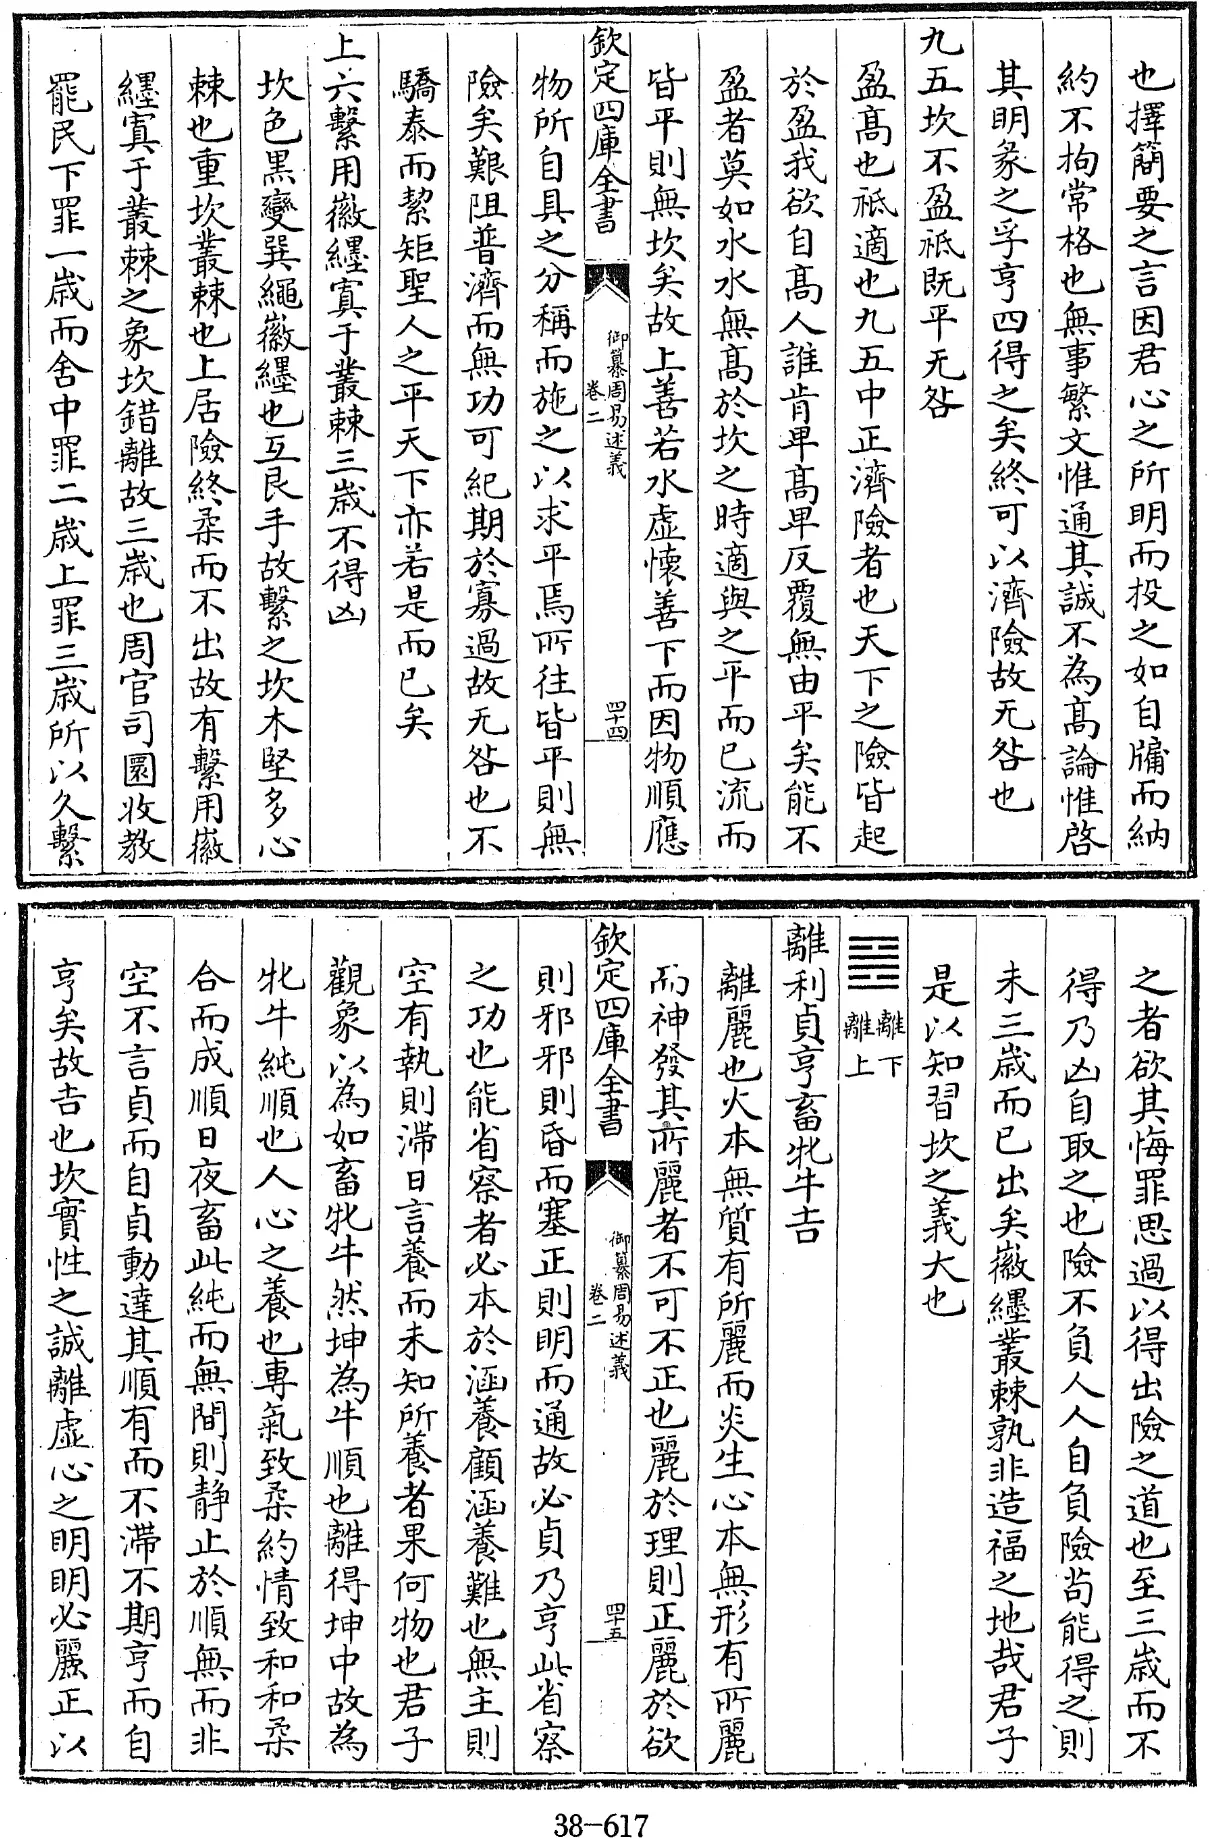 也擇簡要之言因君心之所明而投之如自牖而納
約不拘常格也無事繁文惟通其誠不為髙論惟啓
其明彖之孚亨四得之矣終可以濟險故无咎也
九五坎不盈祗既平无咎
盈髙也祗適也九五中正濟險者也天下之險皆起
於盈我欲自髙人誰肯卑髙卑反覆無由平矣能不
盈者莫如水水無髙於坎之時適與之平而已流而
皆平則無坎矣故上善若水虚懐善下而因物順應
欽定四庫全書
御纂周易述義
卷二
四十四
物所自具之分稱而施之以求平焉所往皆平則無
險矣艱阻普濟而無功可紀期於寡過故无咎也不
驕泰而絜矩聖人之平天下亦若是而已矣
上六繫用徽纆寘于叢棘三歳不得凶
坎色黒變巽繩徽纆也互艮手故繫之坎木堅多心
棘也重坎叢棘也上居險終柔而不出故有繫用徽
纆寘于叢棘之象坎錯離故三歳也周官司圜收教
罷民下罪一歳而舍中罪二歳上罪三歳所以久繫
之者欲其悔罪思過以得出險之道也至三歳而不
得乃凶自取之也險不負人人自負險茍能得之則
未三歳而已出矣徽纆叢棘孰非造福之地哉君子
是以知習坎之義大也
䷝
離下
離上
離利貞亨畜牝牛吉
離麗也火本無質有所麗而炎生心本無形有所麗
而神發其所麗者不可不正也麗於理則正麗於欲
欽定四庫全書
御纂周易述義
卷二
四十五
則邪邪則昏而塞正則明而通故必貞乃亨此省察
之功也能省察者必本於涵養顧涵養難也無主則
空有執則滯日言養而未知所養者果何物也君子
觀象以為如畜牝牛然坤為牛順也離得坤中故為
牝牛純順也人心之養也專氣致柔約情致和和柔
合而成順日夜畜此純而無間則静止於順無而非
空不言貞而自貞動達其順有而不滯不期亨而自
亨矣故吉也坎實性之誠離虚心之明明必麗正以
38-617